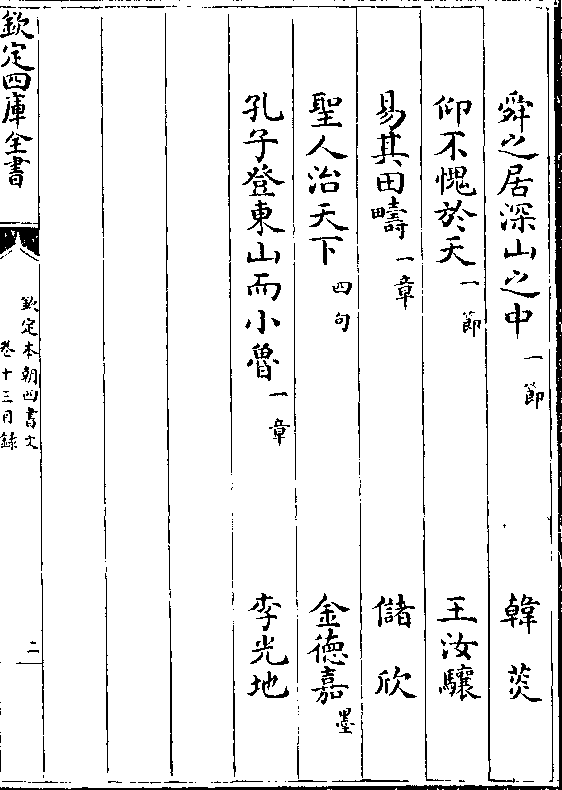 舜之居深山之中一節 韓菼
仰不愧於天一節 王汝驤
易其田疇一章 儲欣
聖人治天下四句 金德嘉墨
孔子登東山而小魯一章 李光地
欽定四庫全書
欽定本朝四書文
卷十三目錄
二